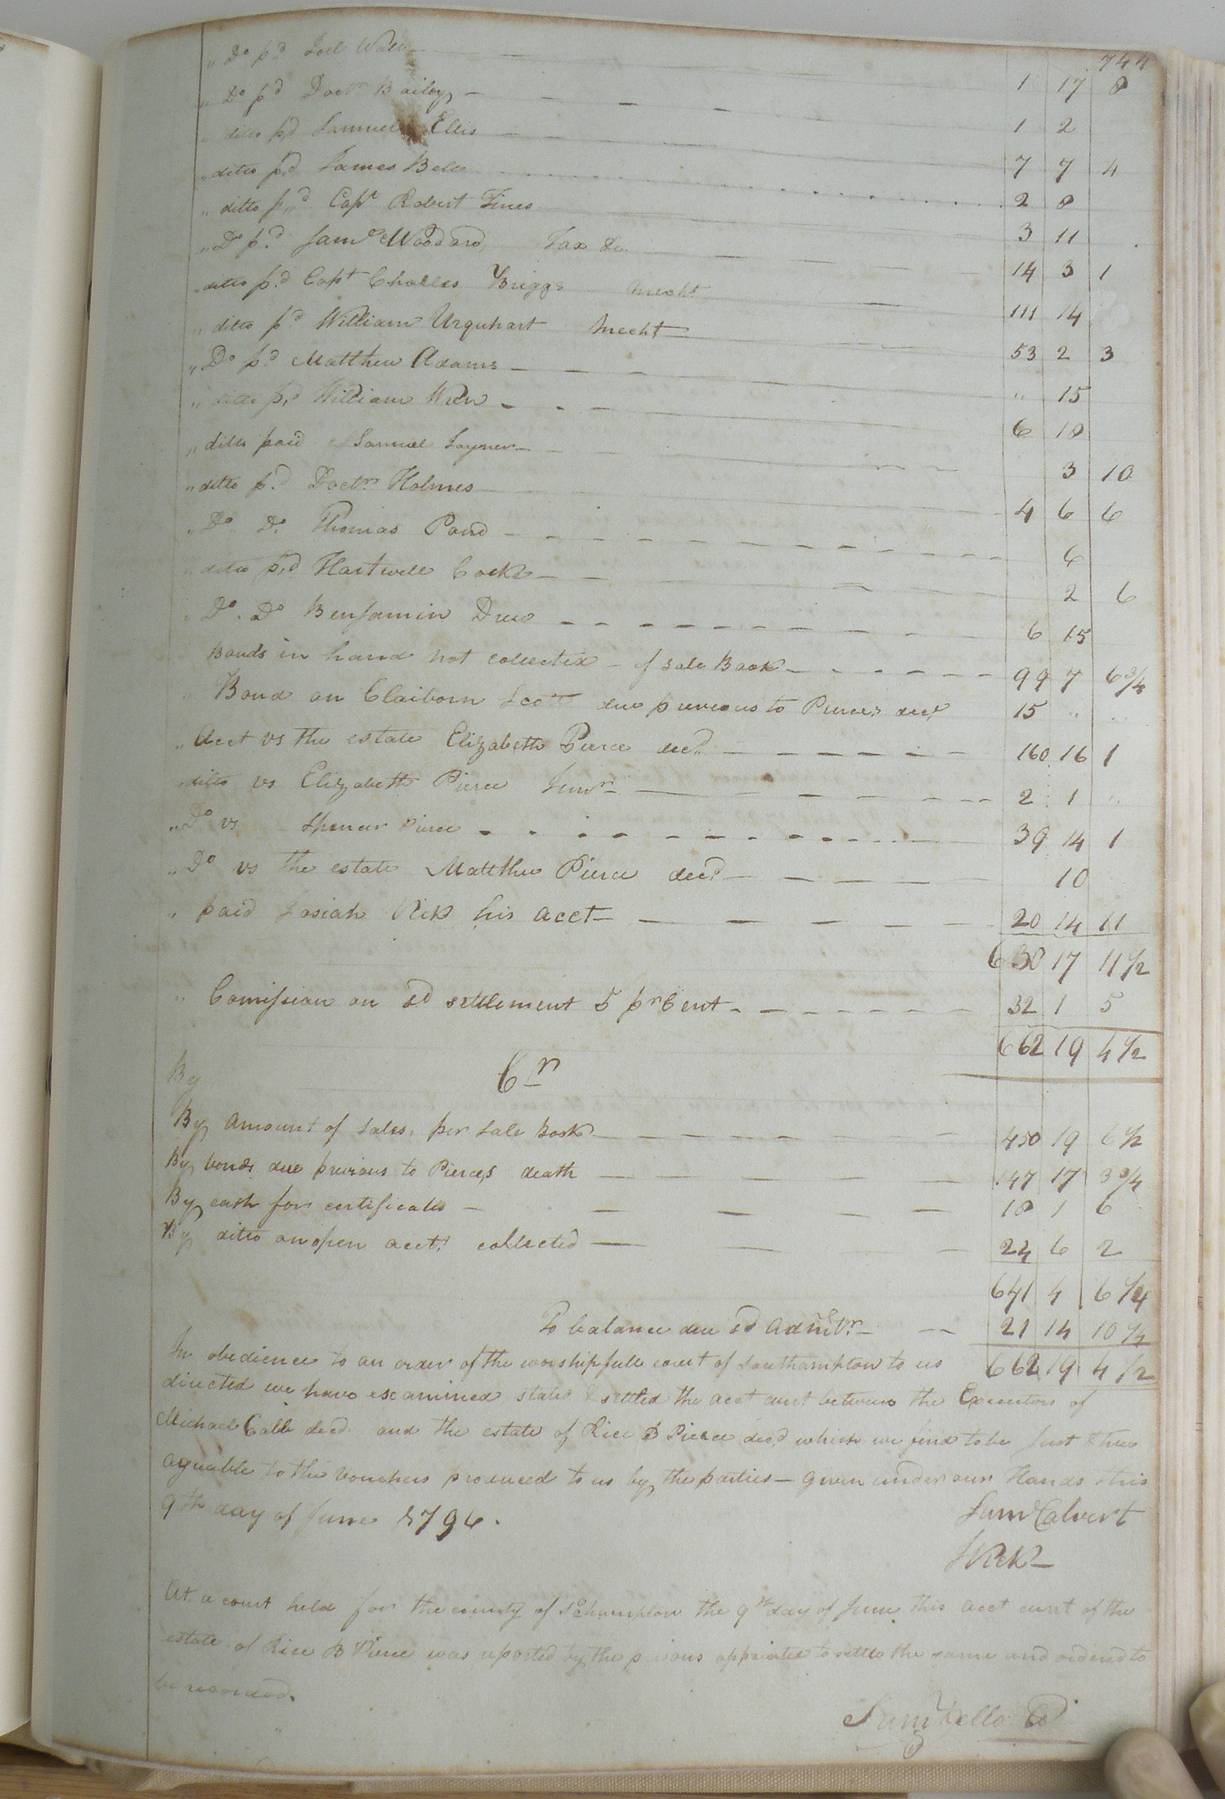 744
" Do pd Joel 1 17 8
" Do pd Doctr Bailey 1 2
" ditto pd Samuel Ellis 7 7 4
" ditto pd James Bell 2 8
" ditto pd Capt Robert Fines 3 11
" Do pd Saml Woodard Tax &c 14 3 1
" ditto pd Capt Charles Briggs mercht 111 14
" ditto pd William Urquhart mercht 53 2 3
" Do pd Matthew Adams " 15
" ditto pd William Wren 6 18
" ditto paid Samuel Joyner 3 10
" ditto pd Doctr Holmes 4 6 6
" Do Do Thomas Pond 6
" ditto pd Hartwell Cocks 2 6
" Do Do Benjamin Drew 6 15
Bonds in hand not collected of Sale Book 99 7 6 3/4
" Bond on Claiborn Scott due previous to Pierces decd 15 " "
" Acct vs the estate Elizabeth Pierce decd 160 16 1
" ditto vs Elizabeth Pierce Junr 2 1 "
" Do vs Spencer Pierce 39 14 1
" Do vs the estate Matthew Pierce decd 10
" paid Josiah Vick his acct 20 14 11
630 17 11 1/2
" Comission on sd settlement 5 pr Cent 32 1 5
662 19 4 1/2
By Cr
By amount of sales, per sale book 450 19 6 1/2
By bonds due previous to Pierces death 147 17 3 3/4
By cash for certificates 18 1 6
By ditto on open acct collected 24 6 2
641 4 6 1/4
To balance due sd admr 21 14 10 1/4
662 19 4 1/2
In obedience to an order of the worshipfull court of Southampton to us
directed we have examined stated & settled the acct curt between the Executors of
Michael decd and the estate of Rice B Pierce decd which we find to be Just & true
aguable to the vouchers produced to us by the parties — given under our Hands this
9th day of June 1796.
Saml Calvert
At a court held for the county of Sohampton the 9th day of June this acct curt of the
estate of Rice B Pierce was reported by the persons appointed to settle the same and ordered to
be recorded.
Saml Kello